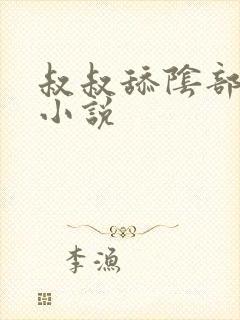 叔叔舔陰部
小說
李漁